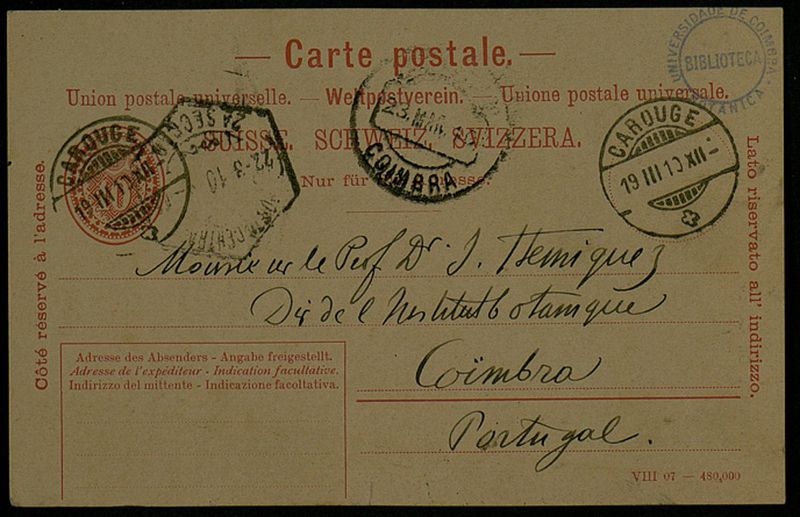 Carte postale.
UNIVERSIDADE DE COIMBRA
BIBLIOTECA
BOTANICA
Union postale universelle. — Weltpostverein. — Unione postale universale.
SUISSE. SCHWEIZ. SVIZZERA.
Nur für die Adresse.
CAROUGE
19 III 10 XII
22-3-10
CENTRAL
23 MAR
COIMBRA
CAROUGE
19 III 10 XII
Côté réservé à l'adresse.
Lato riservato all' indirizzo.
Monsieur le Prof. Dr J. Henriquez
Dir de l'Institut botanique
Coïmbra
Portugal.
Adresse des Absenders - Angabe freigestellt.
Adresse de l'expéditeur - Indication facultative.
Indirizzo del mittente - Indicazione facoltativa.
VIII 07 — 480,000